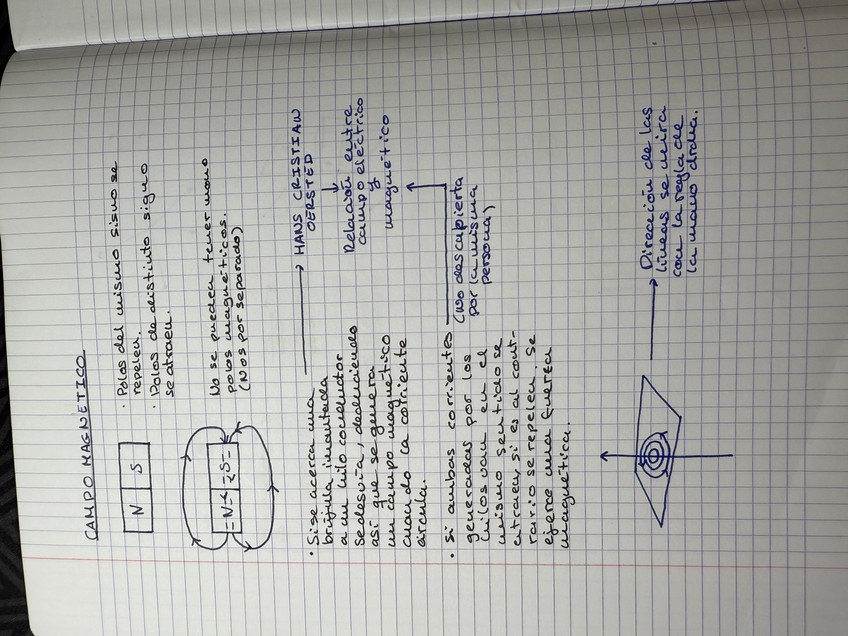 CAMPO MAGNÉTICO
N S
· Polos del mismo signo se
repelen.
· Polos de distinto signo
se atraen.
N S
No se pueden tener mono
polos magnéticos.
(N o S por separado)
· Si se acerca una
brújula imantada
a un hilo conductor
se desvía, deduciendo
así que se genera
un campo magnético
cuando la corriente
circula.
HANS CRISTIAN
OERSTED
Relación entre
campo eléctrico
y
magnético
· Si ambas corrientes
generadas por los
hilos van en el
mismo sentido se
atraen, si es al cont-
rario se repelen, se
ejerce una fuerza
magnética.
(no descupierta
por la misma
persona)
Dirección de las
líneas se mira
con la regla de
la mano drcha.